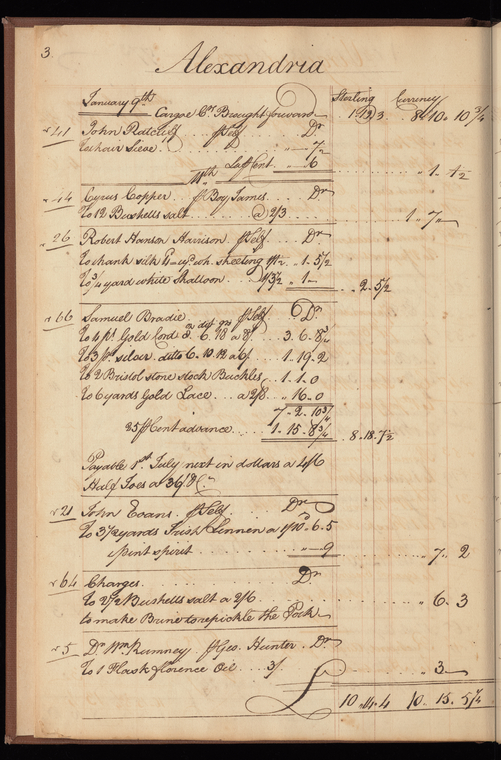 3.
Alexandria
Sterling Currency
January 9th
Cargoe Co. Brought forward 8 10 10 3/4
41 John Ratclif ... pr Self ... Dr
To chair Liese ... 7 1/2
6
11th 1 1 1/2
44 Cyrus Copper .. pr Boy James ... Dr
To 12 Bushells salt ... @ 2/3 1 7
26 Robert Hanson Harrison pr Self .. Dr
To hank silk sheeting 1 5 1/2
To 3/4 yard white Shalloon ... 1 — 2 5 1/2
66 Samuel Bradie pr Self Dr
To 4 ps Gold Cord 6.18 a 8/ 3.6.8 3/4
To 3 ps silver ditto 6.10.12 a 6/ 1.19.2
To 2 Bristol stone stock Buckles 1.1.0
To 6 yards Gold Lace ... a 2/8 16.0
7.2.10 3/4
25 pr Cent advance ... 1.15.8 3/4 8.18.7 1/2
Payable 1st July next in dollars a 4/6
Half Joes a 36/
21 John Evans .. pr Self .. Dr
To 3 1/2 yards Irish Linnen a 1/10 6.5
pint spirit 9 7 2
64 Charges ... Dr
To 2 1/2 Bushells salt a 2/6 6 3
to make Brine to repickle the Pork
5 Dr Wm Rumney pr Geo. Hunter . Dr
To 1 Flask florence Oil ... 3/ 3 —
£ 10 11 4 10 15 5 1/4